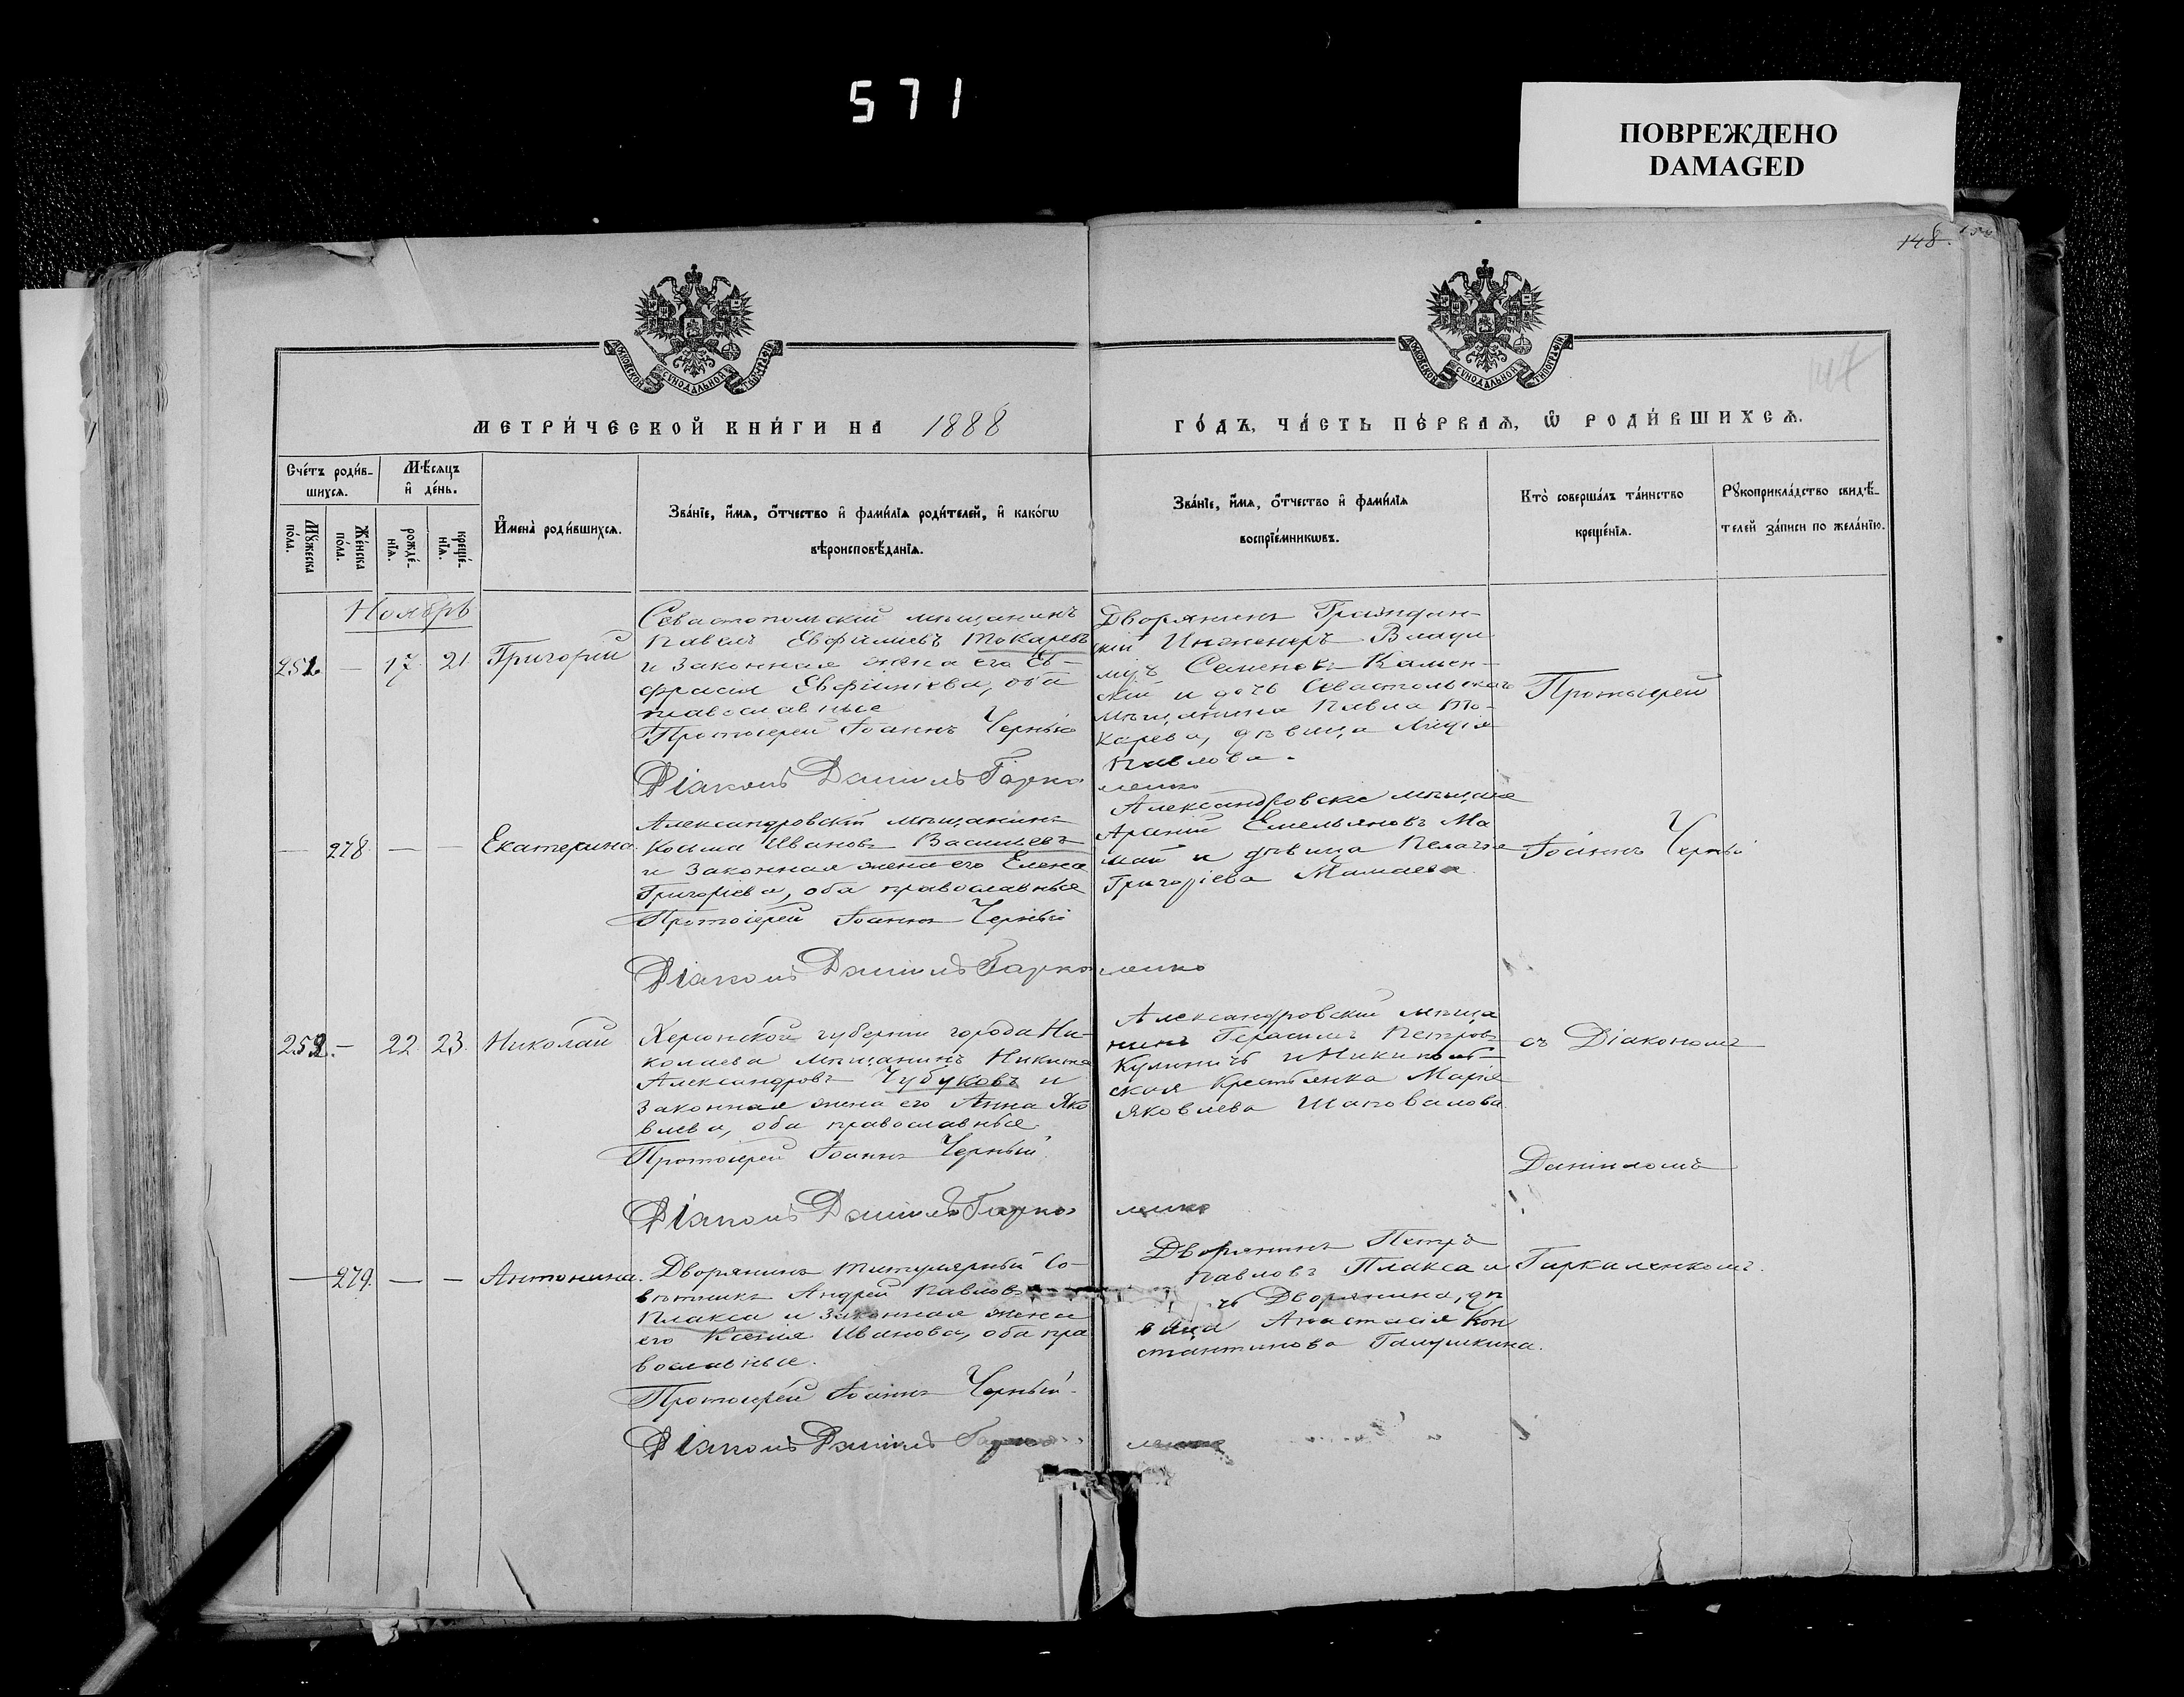 571
ПОВРЕЖДЕНО
DAMAGED
148.
147
МОСКОВСКОЙ СѴНОДАЛЬНОЙ ТИПОГРАФІИ
МОСКОВСКОЙ СѴНОДАЛЬНОЙ ТИПОГРАФІИ
МЕТРИ́ЧЕСКОЙ КНИ́ГИ НА 1888
ГО́ДЪ, ЧА́СТЬ ПЕ́РВАѦ, Ѿ РОДИ́ВШИХСѦ.
Сче́тъ роди́в-
шихсѧ.
Мѣ́сѧцъ
и҆ де́нь.
Мꙋ́жеска
по́ла.
Же́нска
по́ла.
рожде́-
нїѧ.
креще́-
нїѧ.
И҆мена̀ роди́вшихсѧ.
Зва́нїе, и҆́мѧ, ѻ҆́тчество и҆ фами́лїѧ роди́телей, и҆ како́гѡ
вѣроисповѣ́данїѧ.
Зва́нїе, и҆́мѧ, ѻ҆́тчество и҆ фами́лїѧ
воспрїе́мникѡвъ.
Кто̀ соверша́лъ та́инство
креще́нїѧ.
Рꙋкоприкла́дство свидѣ́-
телей за́писи по жела́нїю.
Ноябрь
251. — 17. 21 Григорій
Севастопольскій мѣщанинъ
Павелъ Евфиміевъ Токаревъ
и законная жена его Ев-
фрасія Евфиміева, оба
православные
Протоіерей Іоаннъ Черный
Діаконъ Даніилъ Гарка
ленко
Дворянинъ Граждан-
скій Инженеръ Влади
міръ Семеновъ Камен-
скій и дочь Севастопольскаго
мѣщанина Павла То-
карева, дѣвица Лидія
Павлова.
Протоіерей
— 278. — — Екатерина.
Александровскій мѣщанинъ
Косма Ивановъ Васильевъ
и законная жена его Елена
Григоріева, оба православные
Протоіерей Іоаннъ Черный
Діаконъ Даніилъ Гарка
ленко
Александровскіе мѣщане
Емельяновъ Ма
май и дѣвица Пелагія
Григоріева Мамаева
Іоаннъ Черный
252. — 22. 23. Николай
Херсонской губерніи города Ни-
колаева мѣщанинъ Никита
Александровъ Чубуковъ и
законная жена его Анна Яко
влева, оба православные.
Протоіерей Іоаннъ Черный
Діаконъ Даніилъ Гарка
ленко
Александровскій мѣща
нинъ Герасимъ Петровъ
и Никополь-
ская крестьянка Марія
Яковлева Шаповалова.
съ Діакономъ
Даніиломъ
— 279. — — Антонина.
Дворянинъ Титулярный Со-
вѣтникъ Андрей Павловъ
Плакса и законная жена
его Ксенія Иванова, оба пра
вославные.
Протоіерей Іоаннъ Черный
Діаконъ Даніилъ Гарка
ленко
Дворянинъ Петръ
Павловъ Плакса и
Дворянина, дѣ
вица Анастасія Кон
стантинова Галушкина.
Гаркаленкомъ.